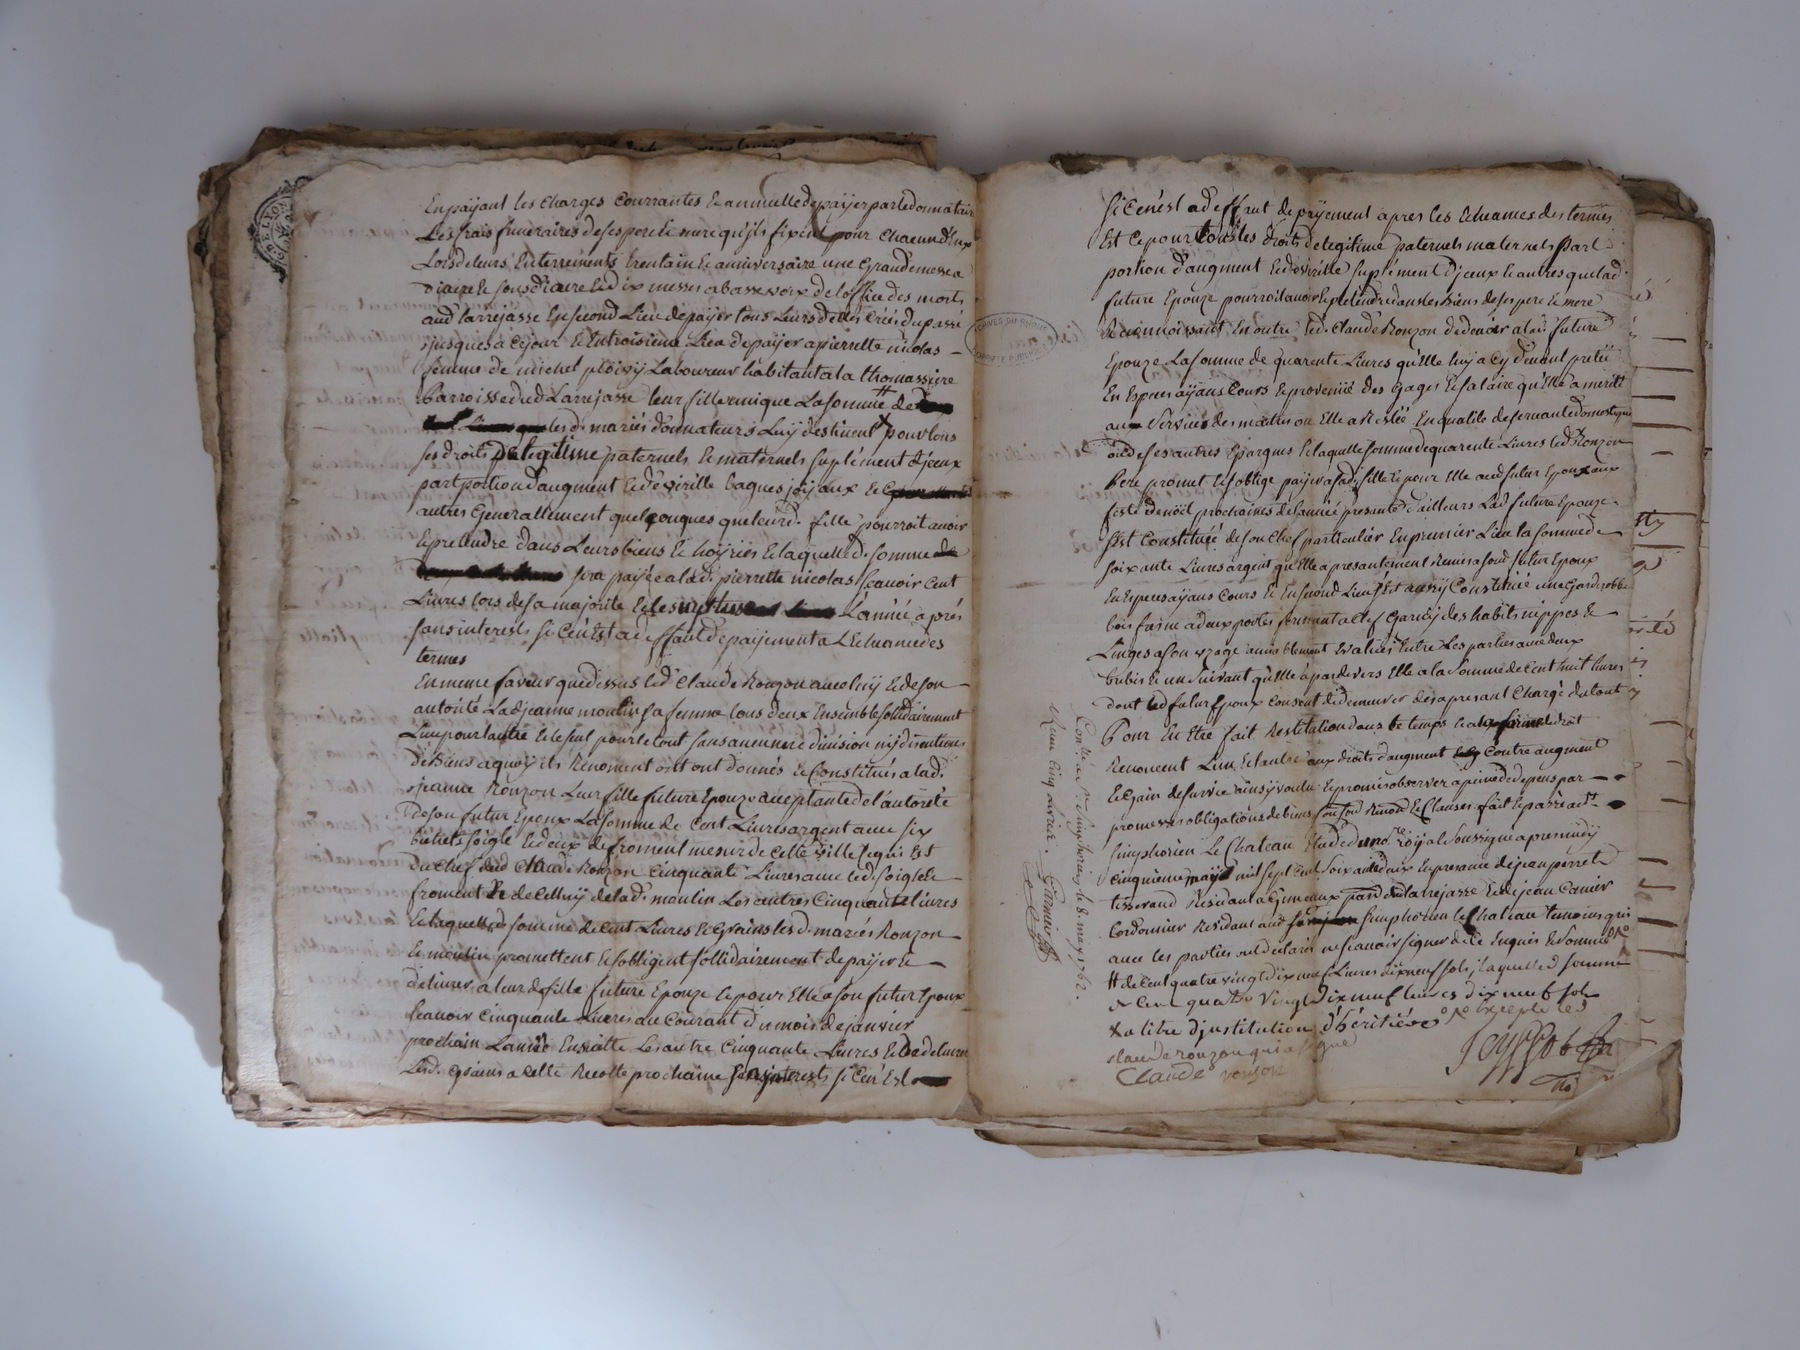 En payant les charges courrantes & annuelle de payer par le donnataire
Les frais funeraires de ses pere & mere qu'ils fixent pour chacun d'eux
Lors de leurs Enterrements trentain & anniversaire une Grande messe a
Diacre & sousdiacre & dix messes a basse voix de l'office des morts
aud Larrejasse En second Lieu de payer tous Leurs dettes Créés du passé
jusques à ce jour & En troisieme Lieu de payer a pierrette nicolas
femme de michel Laboureur habitant a la thomassiere
Parroisse dud Larrejasse leur fille unique La somme de
lesd. mariés donnateurs Luy destinent pour tous
ses droits de legitime paternels & maternels suplément d'jceux
part portion d'augment & de virille bagues joyaux &
autres Generallement quelconques que leurd. fille pourroit avoir
& pretendre dans Leurs biens & hoyries & laquelle d. somme
sera payée a lad. pierrette nicolas scavoir cent
Livres lors de sa majorité & le L'année après
sans interests si Ce n'Est a deffaut de paijement a L'Echeance des
termes
En meme faveur que dessus led Claude Ronzon avec luy & de son
autorité Lad jeanne moulin sa femme tous deux Ensemble sollidairement
L'un pour l'autre & le seul pour le tout sans aucunne division ny discution
de Biens a quoy ils Renoncent ont donnés & Constitués a lad.
jeanne Ronzon Leur fille future Epouze acceptante de l'autorité
De son futur Epoux La somme de Cent Livres argent avec six
bichets soigle & deux de froment mesure de cette ville Ce qui Est
Du chef dud Claude Ronzon cinquante Livres avec led. soigle &
froment & de Celluy de lad. moulin Les autres Cinquante livres
& laquelle d somme de Cent Livres & Grains lesd. mariés Ronzon
& moulin promettent & s'obligent sollidairement de payer &
délivrer a leur d fille future Epouze & pour Elle a son futur Epoux
scavoir cinquante Livres au Courant du mois de janvier
prochain L'année Ensuitte Les autre Cinquante Livres & de delivrer
Lesd. grains a cette Recolte prochaine sans interests si Ce n'Est
si Ce n'Est a deffaut de payement apres les Echeances des termes
Est Ce pour tous les droits de legitime paternels maternels part
portion d'augment & de virille suplément d'jceux & autres que lad.
future Epouze pourroit avoir & pretendre dans les biens de ses pere & mere
Reconnoissant En outre led. Claude Ronzon de devoir a lad. future
Epouze La somme de quarente Livres qu'Elle luy a Cy devant pretée
En Espres ayans Cours & provenüe des gages & salaire qu'Elle a merité
aux Services des maitres ou Elle a Resté En qualité de servante domestique
ou de ses autres Epargnes & laquelle somme de quarente Livres led Ronzon
Pere promet & s'oblige payer a sad. fille & pour Elle aud futur Epoux aux
feste de noël prochaines de l'année presante d'ailleurs Lad future Epouze
s'Est Constituéé de son Chef particulier En premier Lieu la somme de
soixante Livres argent qu'Elle a presantement Remis a sond futur Epoux
En Especes ayans Cours & En second Lieu s'Est aussy Constitué une Gardrobbe
bois fasne a deux portes fermant a clef Garny des habits nippes &
Linges a son uzage amiablement Evalüés Entre Les parties avec deux
brebis & un suivant qu'Elle a par devers Elle a la somme de Cent huit livres
Dont led futur Epoux consent de demeurer des a presant Chargé du tout
Pour En Etre fait Restitution dans le temps & de droit
Renoncent L'un & l'autre aux droits d'augment Contre augment
& Gain de survie ainsy voulu & promis observer a peine de depens par
promesses obligations de biens soub soub Renon & Clauses fait & passé a st
Simphorien Le Chateau Etude du no. Royal Soussigné apres midy
cinquieme may mil sept Cent Soixante deux En presance de jean pierrete
tisserand Residant a Gimeaux parr dud larrejasse & de jean Canier
Cordonnier Residant aud Simphorien le chateau temoins qui
avec les parties ont declaré ne scavoir signer de ce Enquis & Sommés
# de Cent quatre vingt dix neuf Livres dix neuf sols laquelle d somme
x Cent quatre vingt Dix neuf livres dix neuf sols
x a titre d'jnstitution d'héritiére excepté led
claude ronzon qui a signé
Claude ronson
Contr. a st Simphorien le 8. may 1762.
Reçu cinq Livres.
ARCHIVES DU RHONE